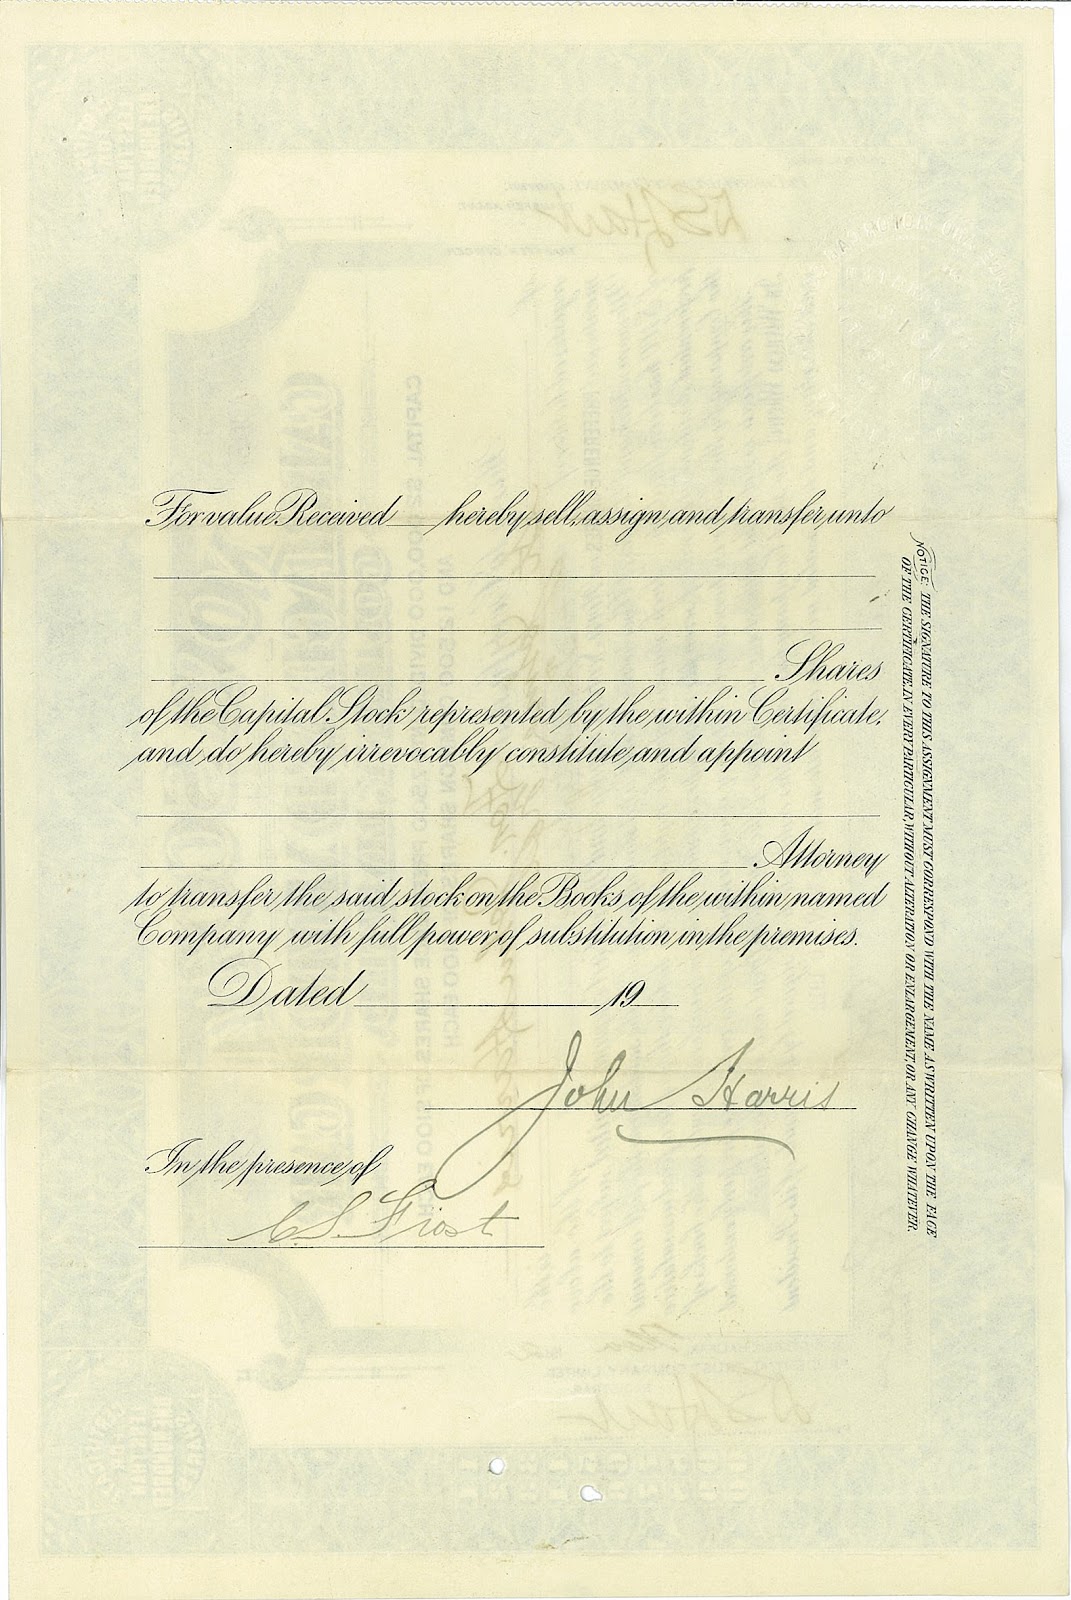 For value Received hereby sell, assign and transfer unto
Shares
of the Capital Stock represented by the within Certificate,
and do hereby irrevocably constitute and appoint
Attorney
to transfer the said stock on the Books of the within named
Company with full power of substitution in the premises.
Dated 19
John Harris
In the presence of
C. S. Frost
NOTICE: THE SIGNATURE TO THIS ASSIGNMENT MUST CORRESPOND WITH THE NAME AS WRITTEN UPON THE FACE
OF THE CERTIFICATE, IN EVERY PARTICULAR, WITHOUT ALTERATION OR ENLARGEMENT, OR ANY CHANGE WHATEVER.